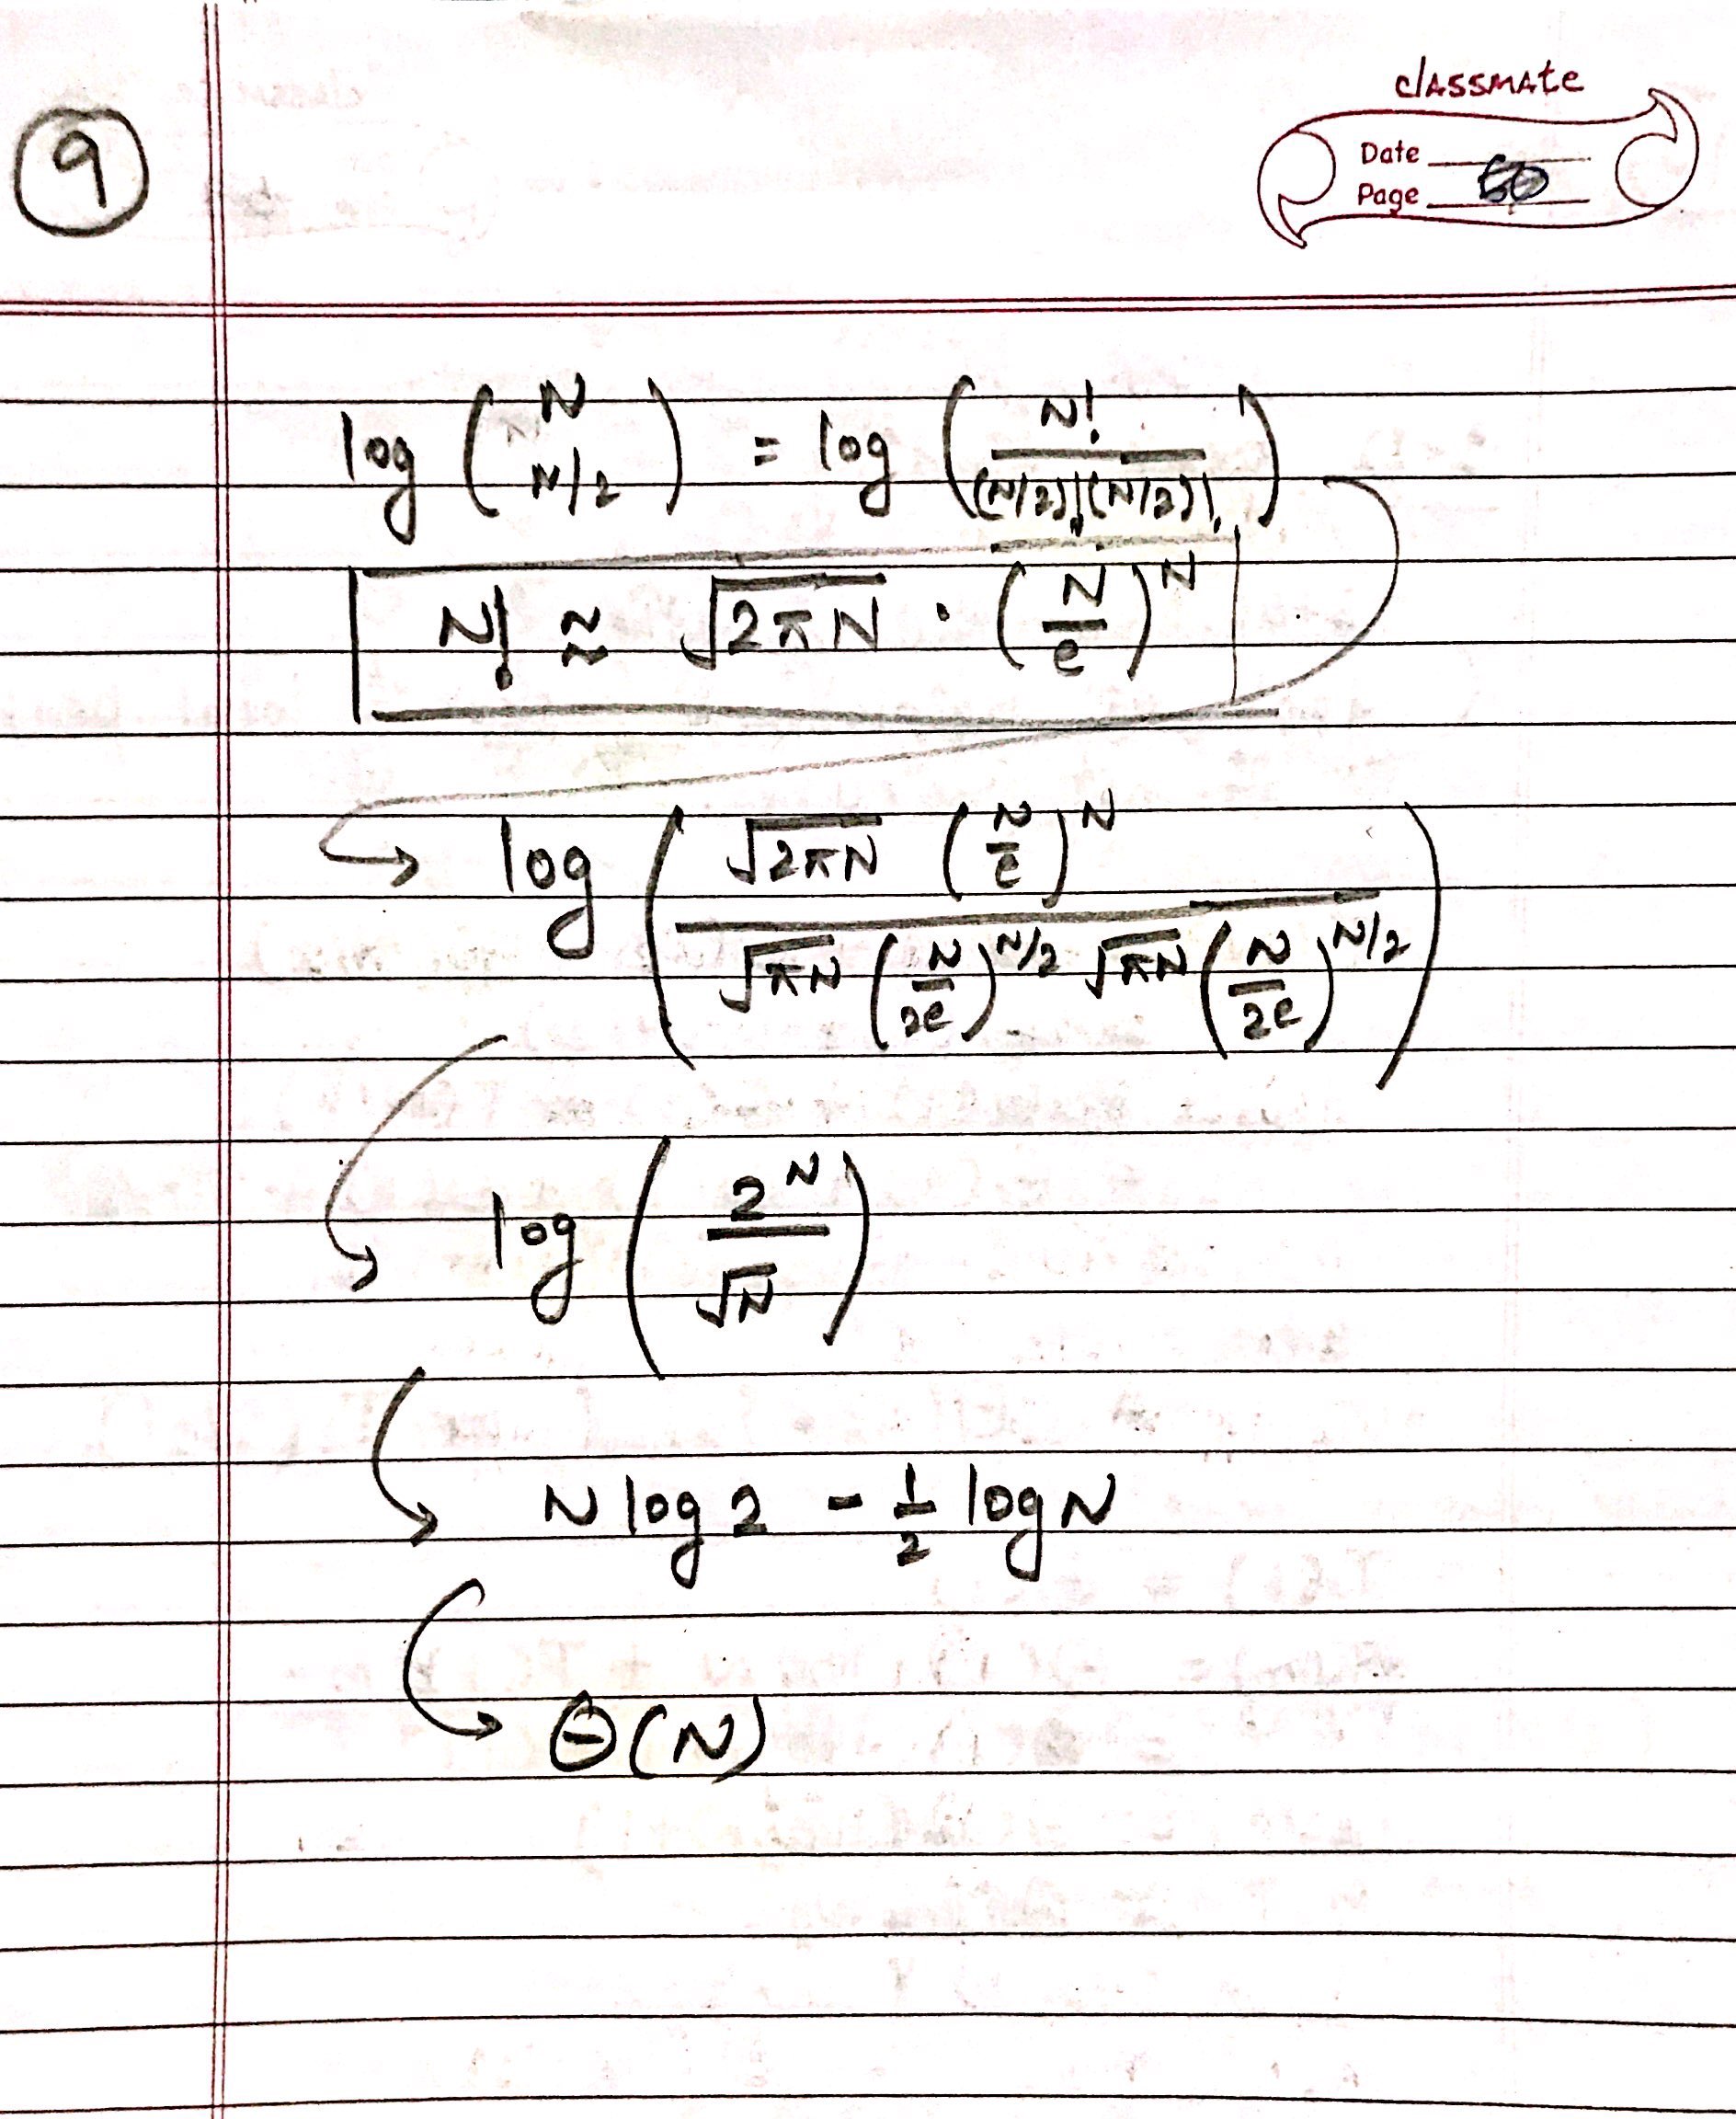 9
classmate
Date
Page 60
log (N N/2) = log (N! / (N/2)!(N/2)!)
N! ≈ √2πN · (N/e)^N
log (√2πN (N/e)^N / √πN (N/2e)^N/2 √πN (N/2e)^N/2)
log (2^N / √N)
N log 2 - 1/2 log N
Θ(N)